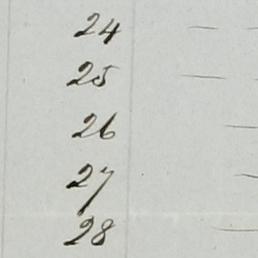 24 — —
25 —
26 —
27 —
28 —